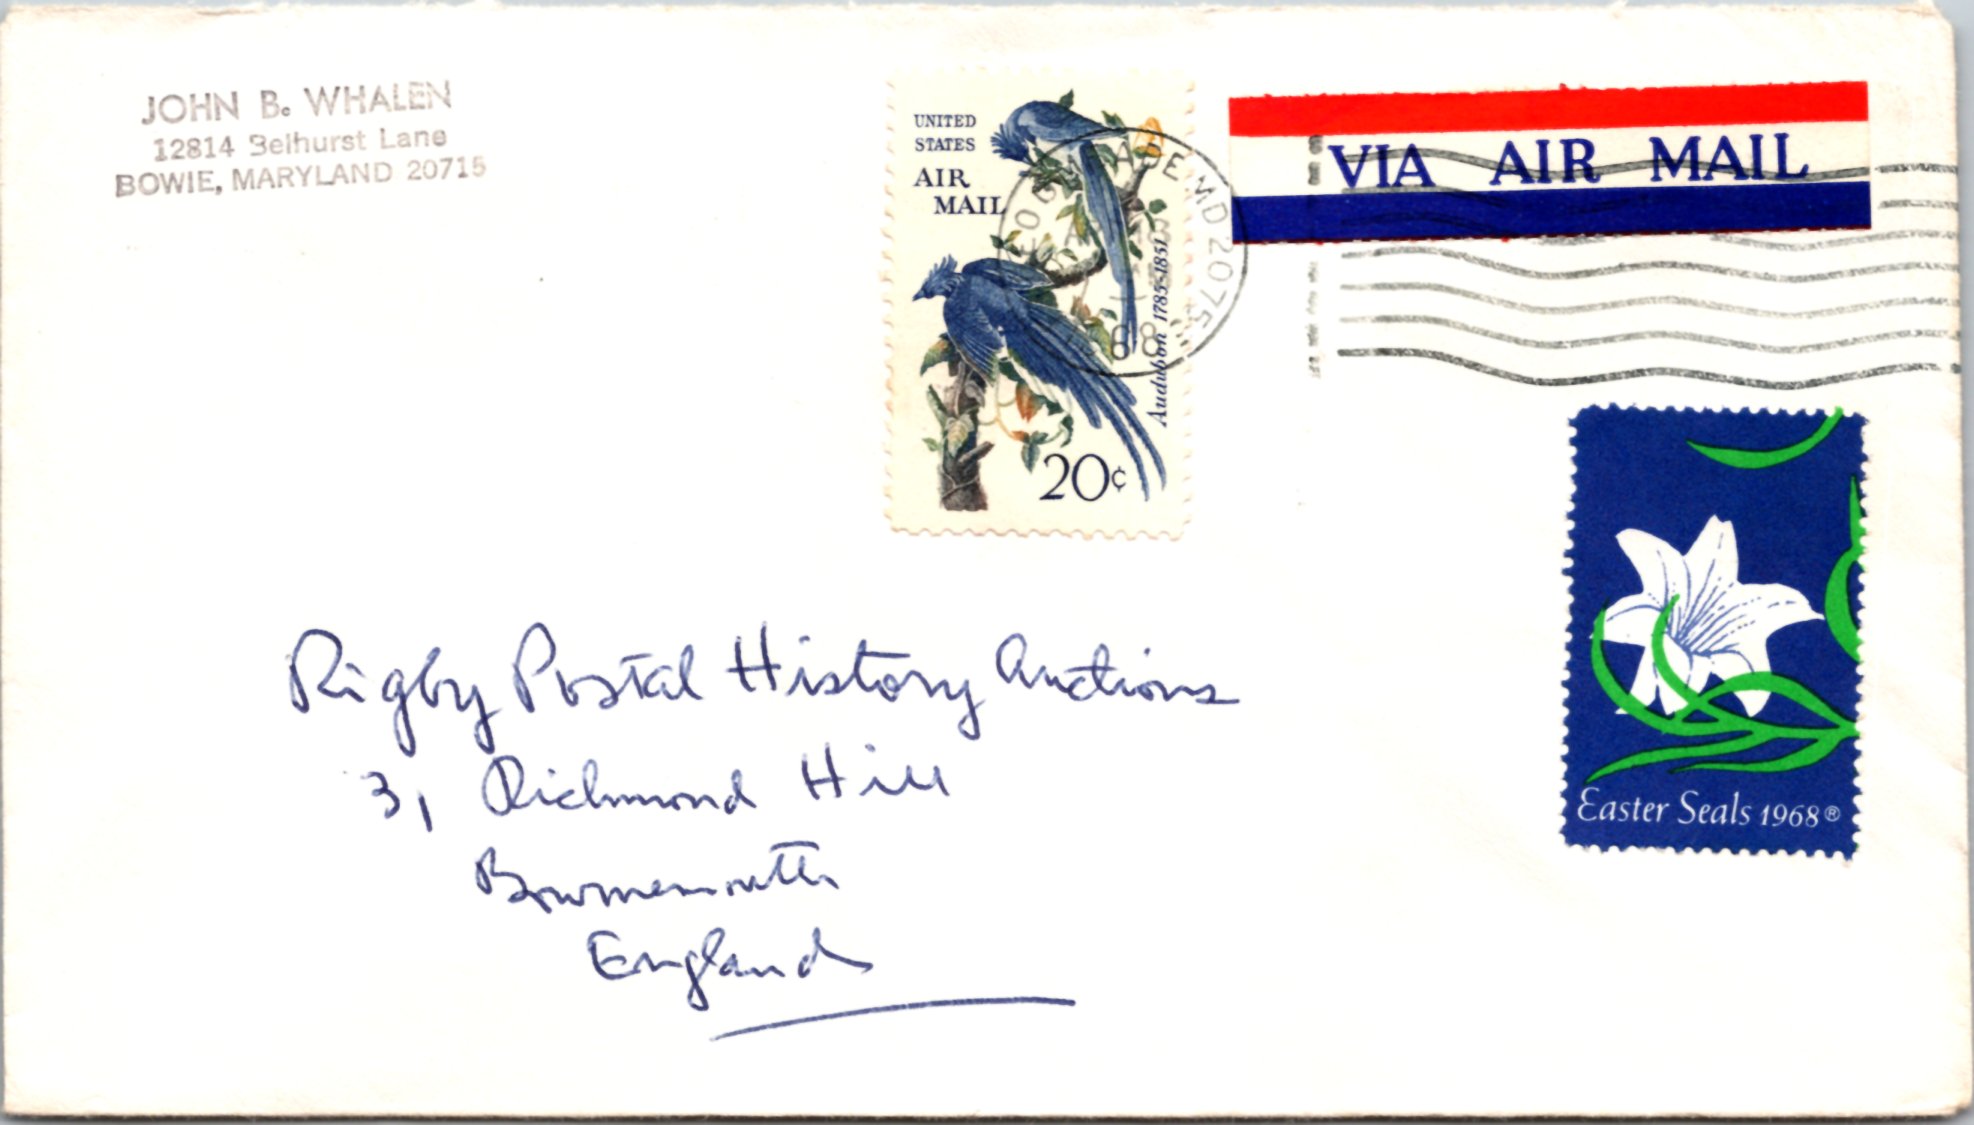 JOHN B. WHALEN
12814 Belhurst Lane
BOWIE, MARYLAND 20715
UNITED
STATES
AIR
MAIL
Audubon 1785-1851
20¢
MD 207
68
VIA AIR MAIL
Easter Seals 1968®
Rigby Postal History Auctions
3, Richmond Hill
Bournemouth
England